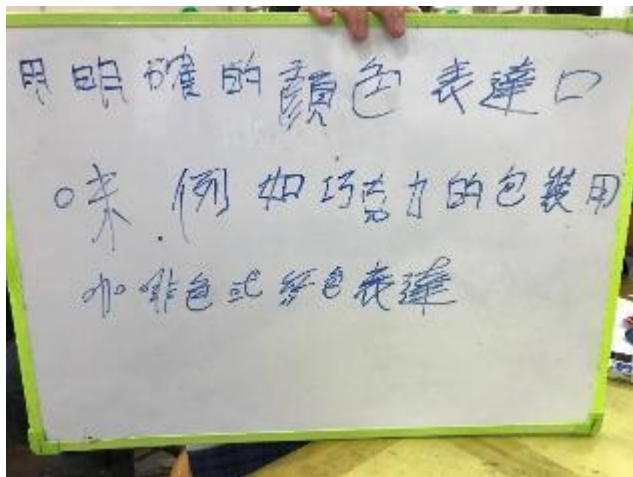 用明確的顏色表達口
味.例如巧克力的包裝用
咖啡色或 色表達